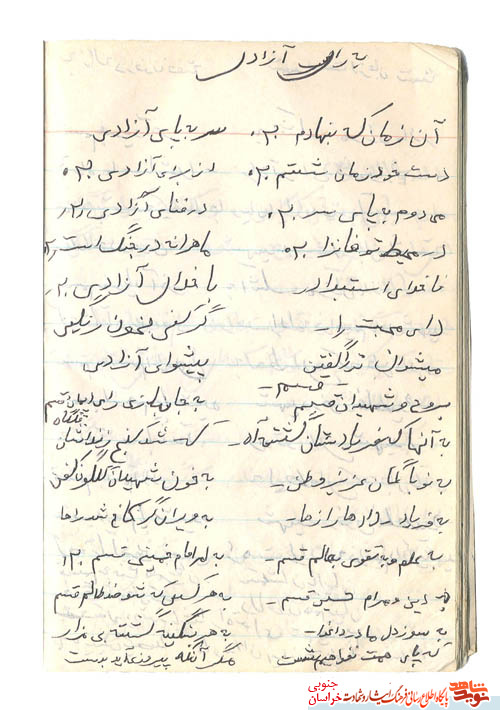 به رای آزادی
آن زمان که بنهادم ۲. سر به پای آزادی
دست خود ز جان شستم ۲. از برای آزادی ۲.
می دوم به پای سر ۲. در قفای آزادی ۲.
در محیط توفانزا ۲. ماهرانه در جنگ است ۲.
ناخدای استبداد با خدای آزادی ۲.
دامن محبت را گر کنی ز خون رنگین
میتوان تو را گفتن پیشوای آزادی
قسم
به روح شهیدان قسم به جان
به آنها که فریادشان گشته آه - که شد کنج زندانشان
به نوباوگان عزیز وطن - به خون شهیدان گلگون کفن
به فریاد به ویران گر کاخ
به علم و به تقوی به عالم قسم - به امر امام خمینی قسم ۲.
به دین و مرام حسین قسم - به هر کس که
به سوز دل مادر داغدار - به هر سنگ گشته بی مزار
که پای همت نخواهیم نشست مگر آنگه پیروزی آید بدست
نوید شاهد
پایگاه اطلاع رسانی فرهنگ ایثار و شهادت
خراسان جنوبی